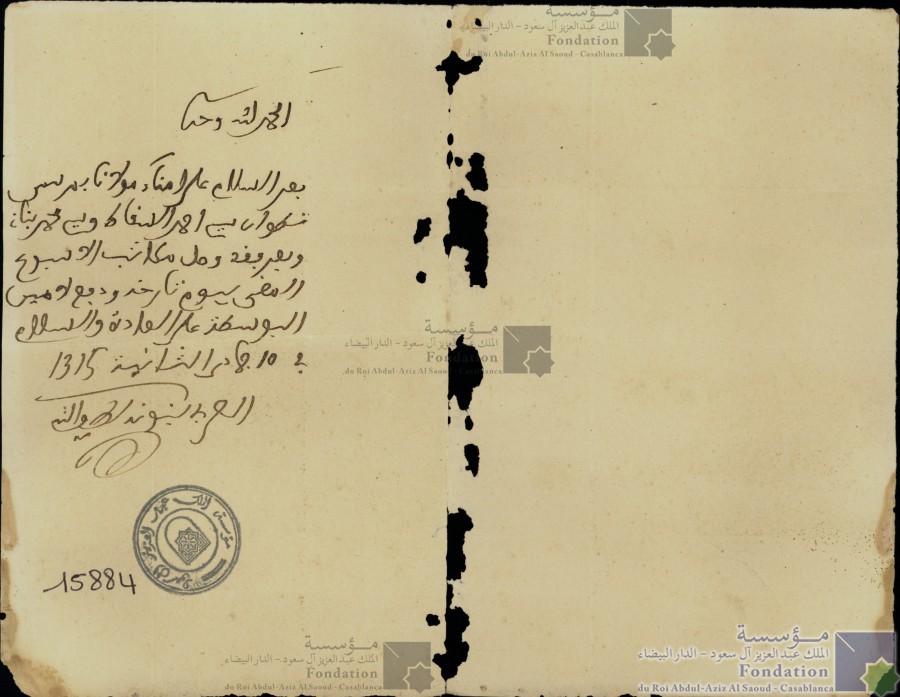 مؤسسة
الملك عبد العزيز آل سعود - الدار البيضاء
Fondation
du Roi Abdul-Aziz Al Saoud - Casablanca
الحمد لله وحده
بعد السلام على امناء مولانا بمرسى
تطوان سي احمد و سي محمد بنا
وبعد فقد وصل مكاتب الاسبوع
الـمضى بيوم تارخه ودفع لامين
البوسطة على العادة والسلام
في 10 جمادى الثانية 1315
مؤسسة
الملك عبد العزيز آل سعود - الدار البيضاء
Fondation
du Roi Abdul-Aziz Al Saoud - Casablanca
15884
مؤسسة
الملك عبد العزيز آل سعود - الدار البيضاء
Fondation
du Roi Abdul-Aziz Al Saoud - Casablanca
مؤسسة
الملك عبد العزيز آل سعود - الدار البيضاء
Fondation
du Roi Abdul-Aziz Al Saoud - Casablanca